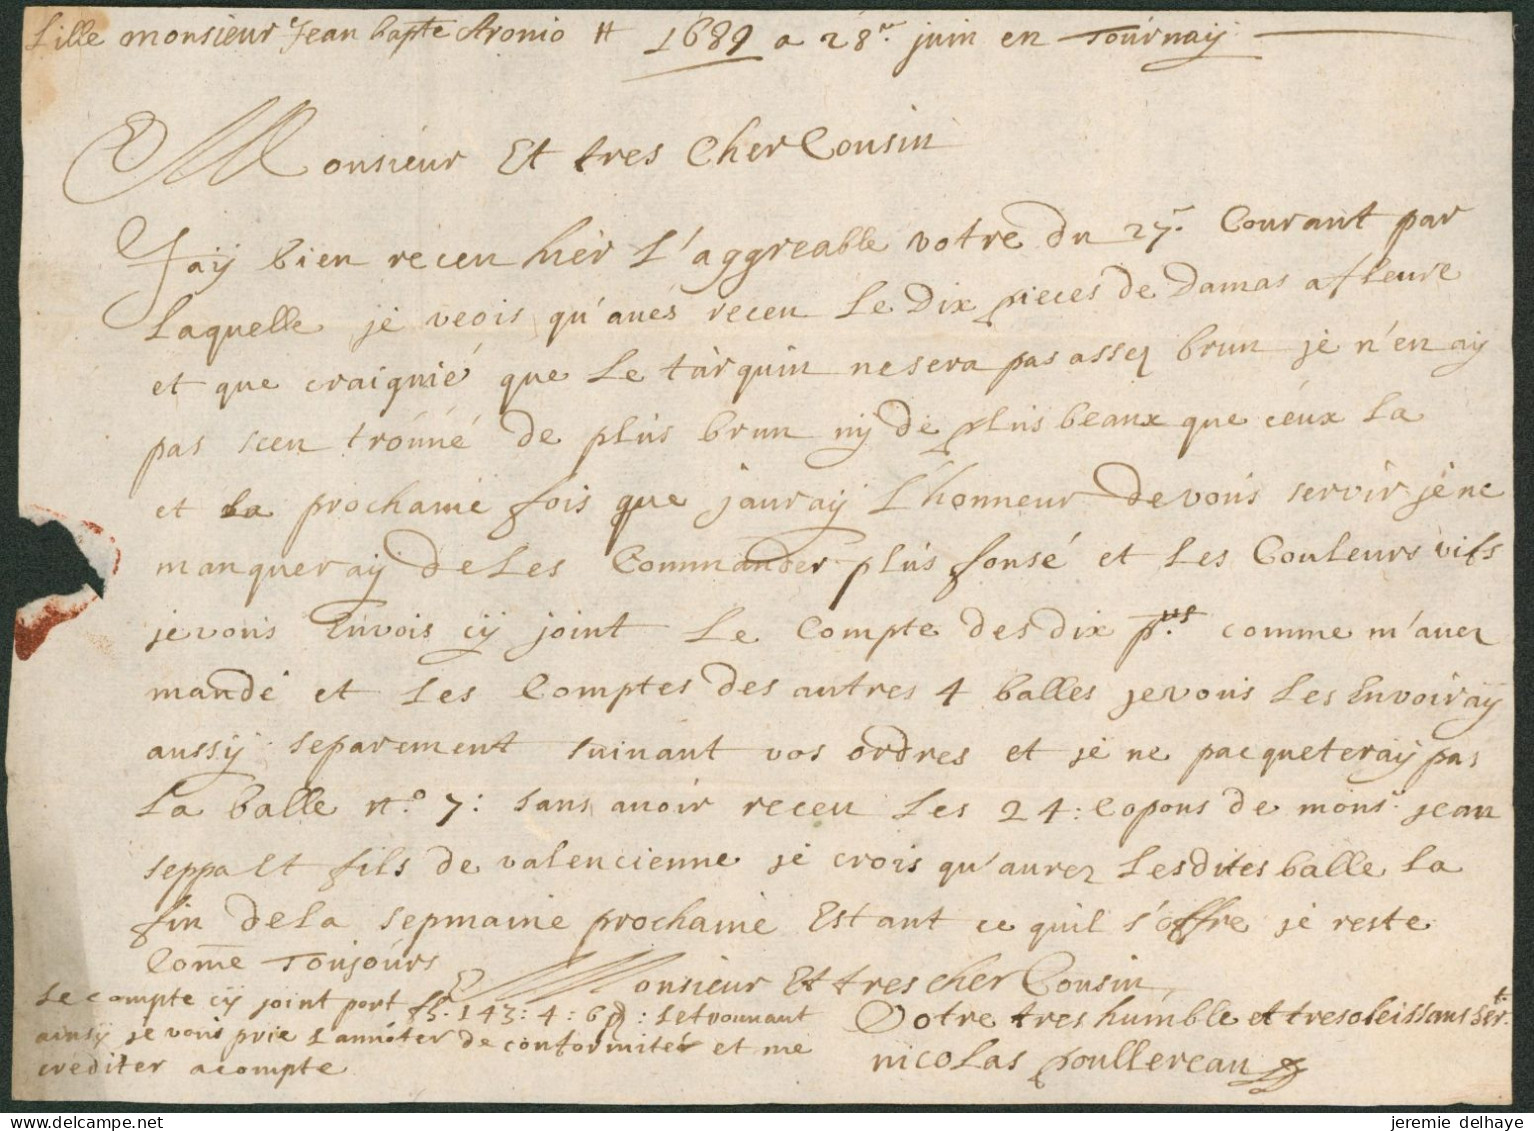 Lille monsieur Jean bapte Aronio # 1689 a 28en juin en Tournaÿ
Monsieur Et tres Cher Cousin
Jaÿ bien receu hier L'aggreable votre du 27e Courant par
Laquelle je veois qu'aués receu Le Dix pieces de Damas a fleure
et que craignié que Le tarquin ne sera pas assez brun je n'en aÿ
pas sceu trouué de plus brun nÿ de plus beaux que ceux La
et La prochaine fois que jauraÿ L'honneur de vous servir je ne
manqueraÿ de Les Commander plus fonsé et Les Couleurs vifs
je vous Envois cÿ joint Le Compte des dix p.us comme m'auez
mandé et Les Comptes des autres 4 balles je vous Les Envoiraÿ
aussÿ separement suiuant vos ordres et je ne pacqueteraÿ pas
La balle n.o 7: sans auoir receu Les 24: Copons de mons.r jean
seppalt fils de valencienne je crois qu'aurez Lesdites balle La
fin de La sepmaine prochaine Estant ce quil s'offre je reste
Come Toujours Monsieur Et tres cher Cousin
Le compte cÿ joint port 143: 4: 6 : Le trouuant
Votre tres humble et tres obeissans Ser.t
ainsÿ je vous prie L'annoter de conformiter et me
crediter acompte
nicolas poullereau
jeremie delhaye